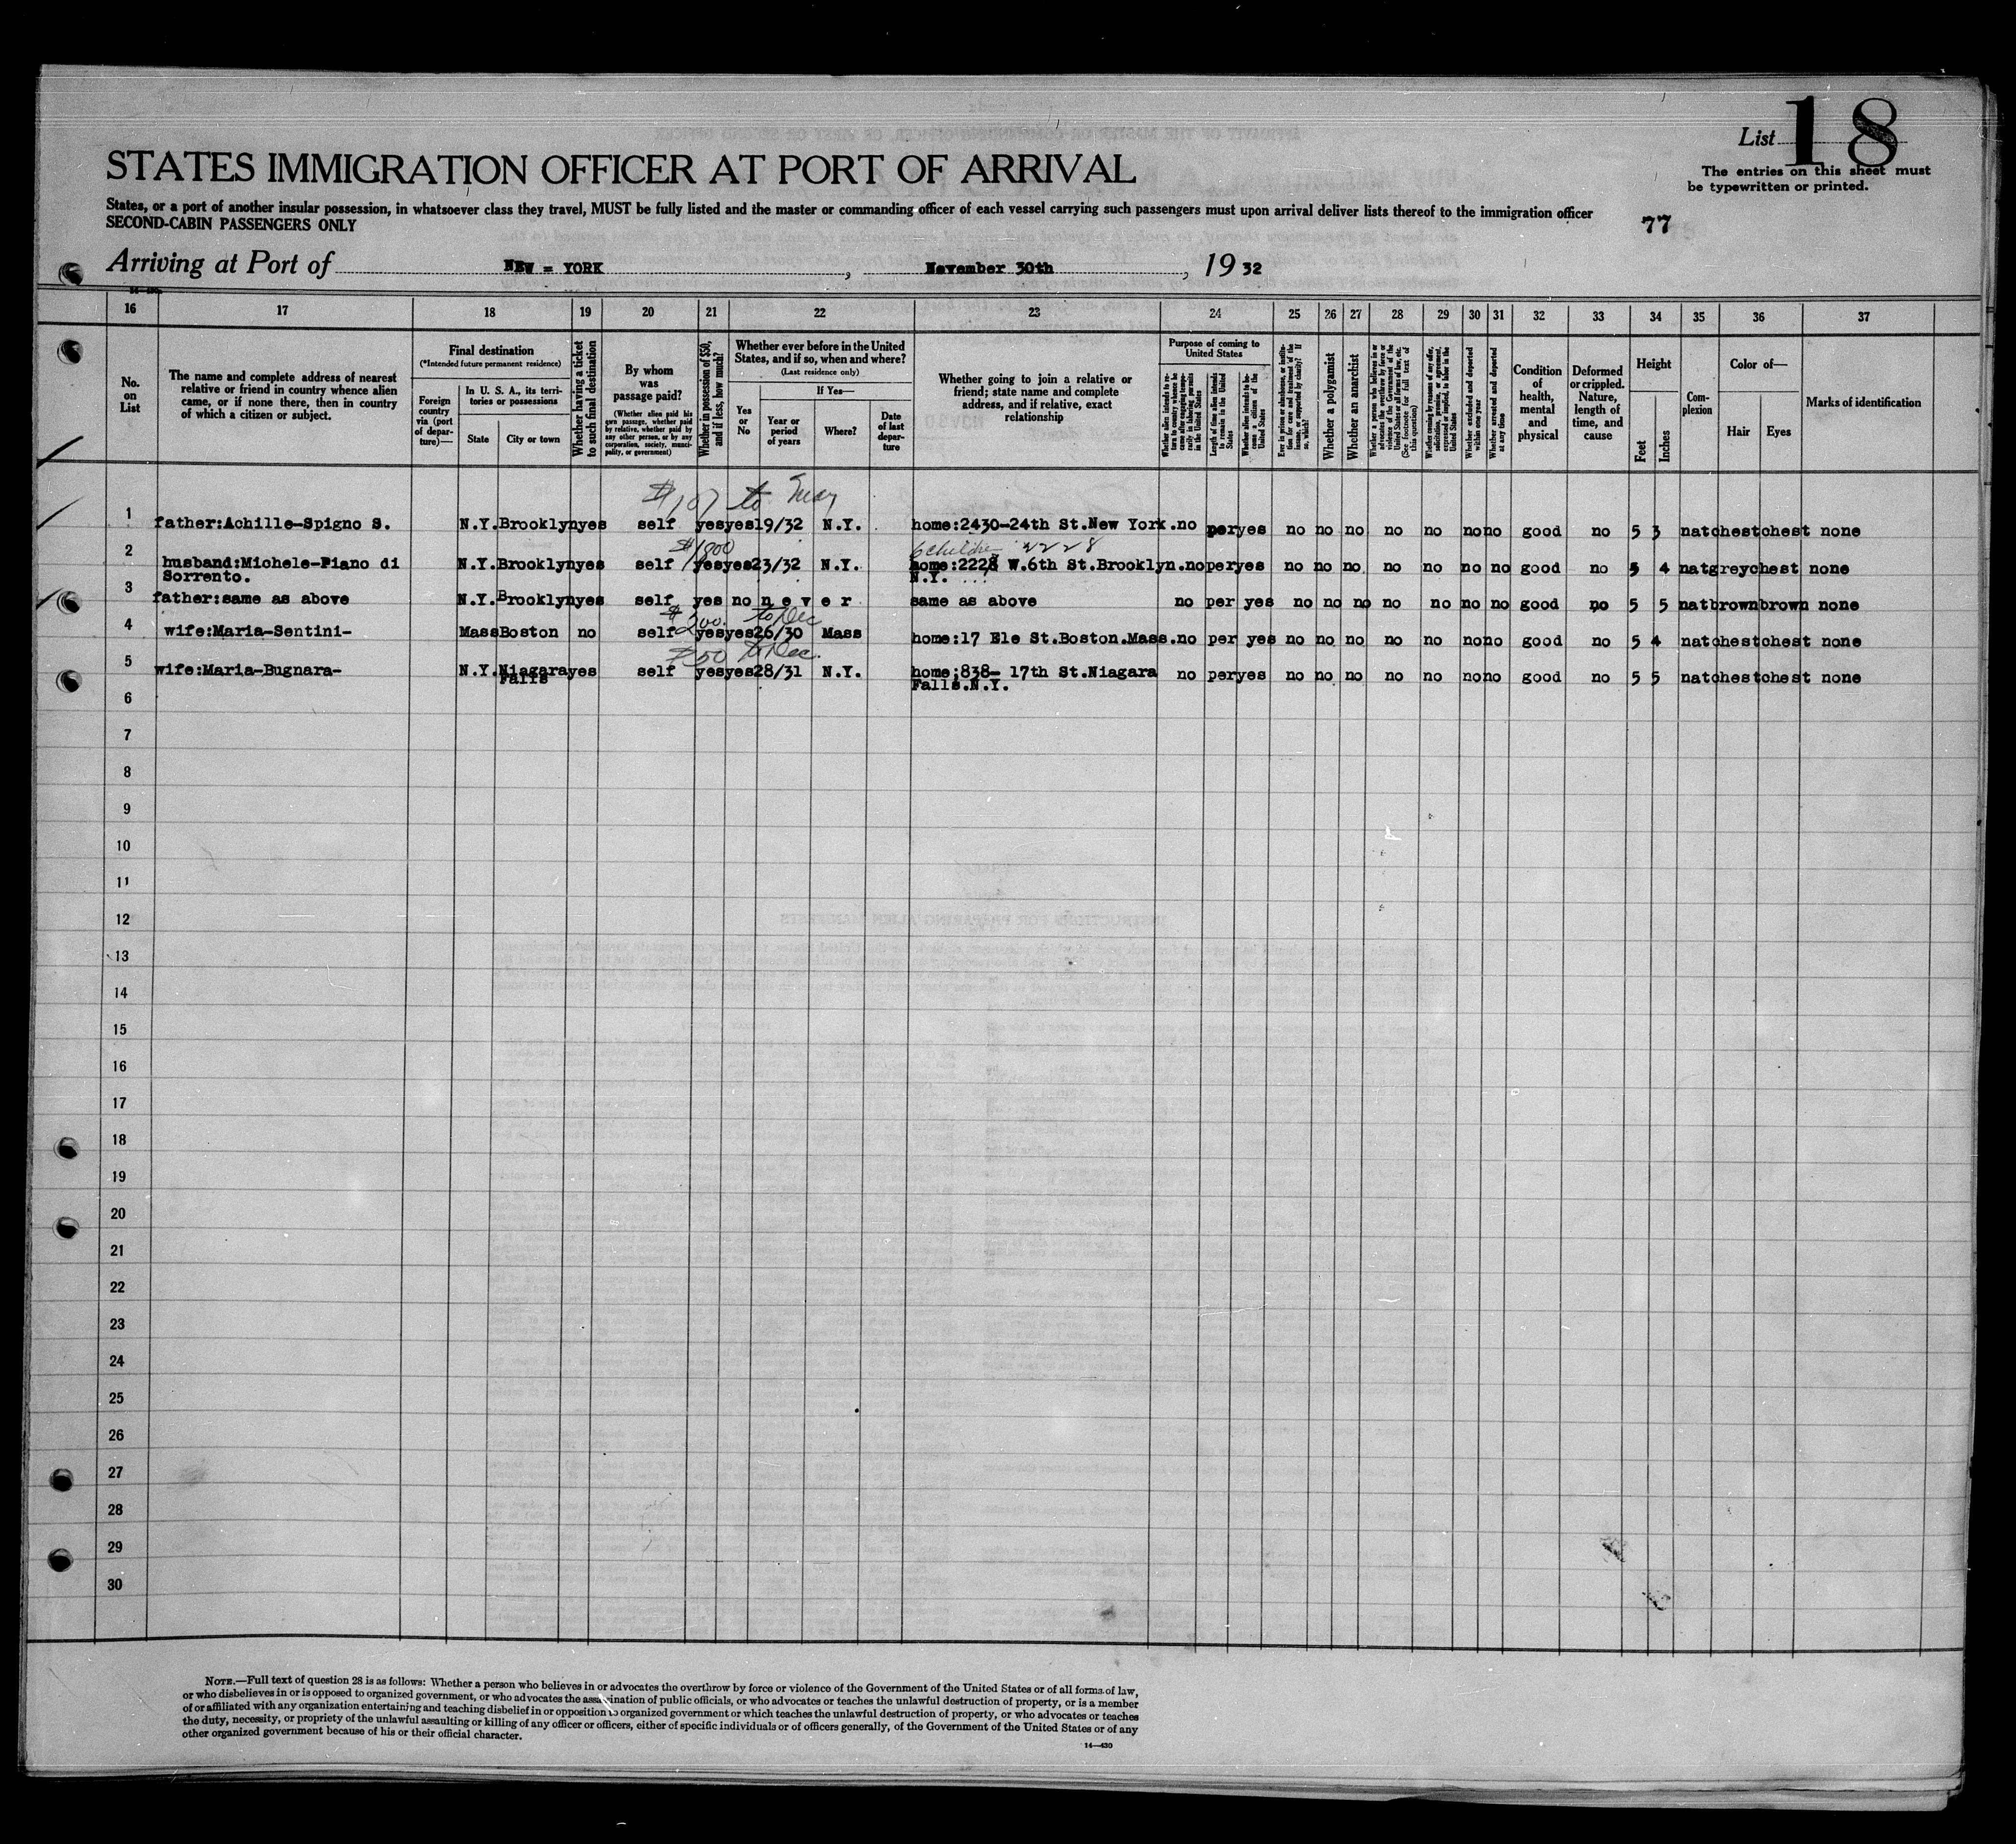 List 18
The entries on this sheet must
be typewritten or printed.
STATES IMMIGRATION OFFICER AT PORT OF ARRIVAL
States, or a port of another insular possession, in whatsoever class they travel, MUST be fully listed and the master or commanding officer of each vessel carrying such passengers must upon arrival deliver lists thereof to the immigration officer
SECOND-CABIN PASSENGERS ONLY
77
Arriving at Port of NEW = YORK, November 30th, 1932
16 17 18 19 20 21 22 23 24 25 26 27 28 29 30 31 32 33 34 35 36 37
No. on List
The name and complete address of nearest
relative or friend in country whence alien
came, or if none there, then in country
of which a citizen or subject.
Final destination
(*Intended future permanent residence)
Foreign country via (port of departure)—
In U. S. A., its territories or possessions
State
City or town
Whether having a ticket to such final destination
By whom was passage paid?
(Whether alien paid his own passage, whether paid by relative, whether paid by any other person, or by any corporation, society, municipality, or government)
Whether in possession of $50, and if less, how much?
Whether ever before in the United States, and if so, when and where?
(Last residence only)
Yes or No
If Yes—
Year or period of years
Where?
Date of last departure
Whether going to join a relative or
friend; state name and complete
address, and if relative, exact
relationship
Purpose of coming to United States
Whether alien intends to return to country whence he came after engaging temporarily in laboring pursuits in the United States
Length of time alien intends to remain in the United States
Whether alien intends to become a citizen of the United States
Ever in prison or almshouse, or institution for care and treatment of the insane, or supported by charity? If so, which?
Whether a polygamist
Whether an anarchist
Whether a person who believes in or advocates the overthrow by force or violence of the Government of the United States or all forms of law, etc. (See footnote for full text of this question)
Whether coming by reason of any offer, solicitation, promise, or agreement, expressed or implied, to labor in the United States
Whether excluded and deported within one year
Whether arrested and deported at any time
Condition of health, mental and physical
Deformed or crippled. Nature, length of time, and cause
Height
Feet
Inches
Complexion
Color of—
Hair
Eyes
Marks of identification
$107 to May
1 father:Achille-Spigno S. N.Y. Brooklyn yes self yes yes 19/32 N.Y. home:2430-24th St.New York. no per yes no no no no no no no good no 5 3 nat chest chest none
$1800 6 children 2228
2 husband:Michele-Piano di N.Y. Brooklyn yes self yes yes 23/32 N.Y. home:2228 W.6th St.Brooklyn. no per yes no no no no no no no good no 5 4 nat grey chest none
Sorrento. N.Y.
3 father:same as above N.Y. Brooklyn yes self yes no never same as above no per yes no no no no no no no good no 5 5 nat brown brown none
$200. to Dec
4 wife:Maria-Sentini- Mass Boston no self yes yes 26/30 Mass home:17 Ele St.Boston.Mass. no per yes no no no no no no no good no 5 4 nat chest chest none
$50 to Dec.
5 wife:Maria-Bugnara- N.Y. Niagara yes self yes yes 28/31 N.Y. home:838- 17th St.Niagara no per yes no no no no no no no good no 5 5 nat chest chest none
Falls Falls.N.Y.
6
7
8
9
10
11
12
13
14
15
16
17
18
19
20
21
22
23
24
25
26
27
28
29
30
NOTE.—Full text of question 28 is as follows: Whether a person who believes in or advocates the overthrow by force or violence of the Government of the United States or of all forms of law,
or who disbelieves in or is opposed to organized government, or who advocates the assassination of public officials, or who advocates or teaches the unlawful destruction of property, or is a member
of or affiliated with any organization entertaining and teaching disbelief in or opposition to organized government or which teaches the unlawful destruction of property, or who advocates or teaches
the duty, necessity, or propriety of the unlawful assaulting or killing of any officer or officers, either of specific individuals or of officers generally, of the Government of the United States or of any
other organized government because of his or their official character.
14—430